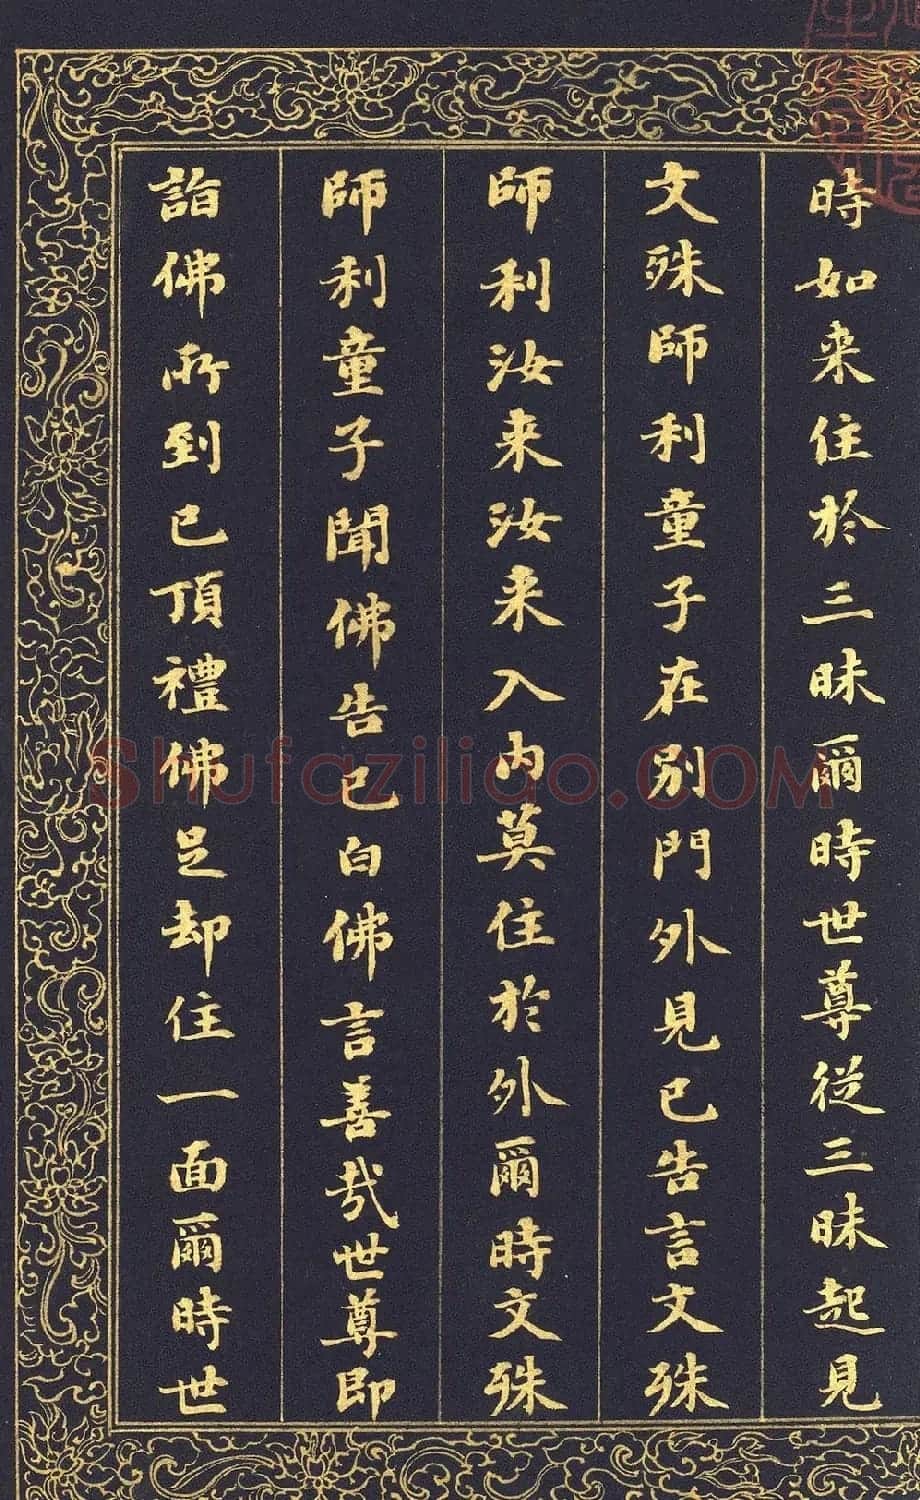 時如来住於三昧爾時世尊從三昧起見
文殊師利童子在别門外見已告言文殊
師利汝来汝来入内莫住於外爾時文殊
師利童子聞佛告已白佛言善哉世尊即
詣佛所到已頂禮佛足却住一面爾時世
Shufaziliao.COM